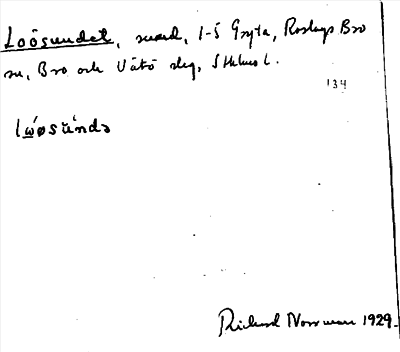 Loösundet, sund, 1-5 Gryta, Roslags Bro
sn, Bro och Vätö slg, Sthlms l.
134
Richard Norrman 1929.